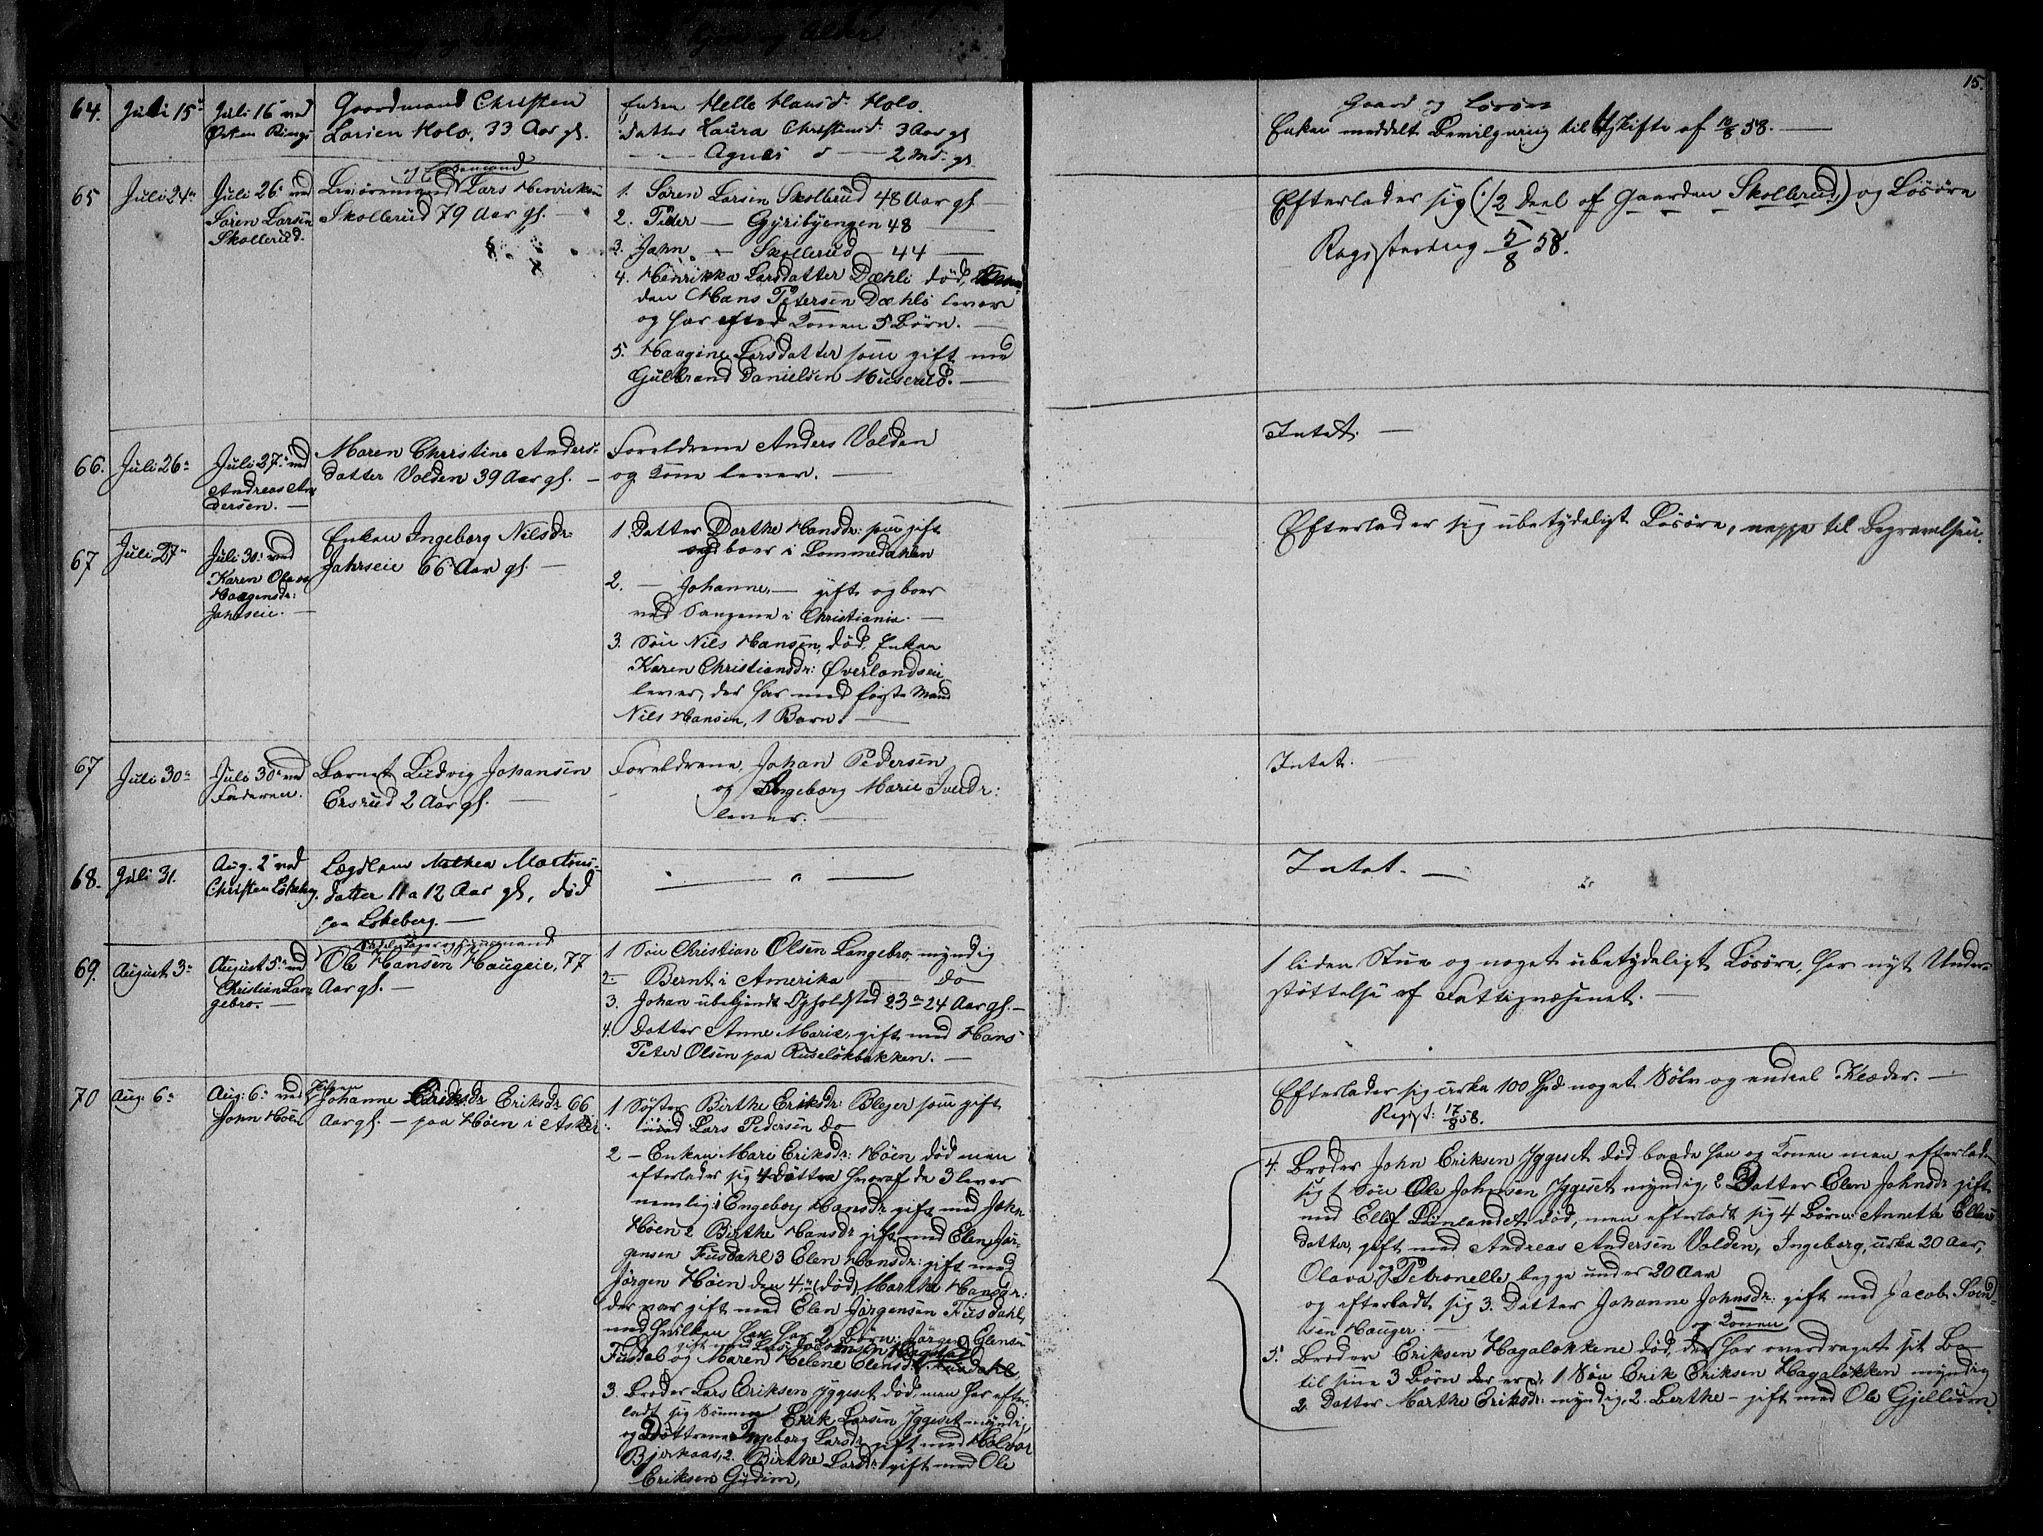 15.
og Alder
64. Juli 15de Juli 16 ved Gaardmand Christen Enken Helle Hansd. Holo.
Larsen Holo, 33 Aar gl. Datter Laura Christensd. 3 Aar gl
Agnes d — 2 Md. gl.
Gaard og Løsøre
Enken meddelt Bevilgning til Skifte af 12/8 58. —
65 Juli 24de Juli 26 ved Søren Larsen Skollerud.
Lars Henriksen
Skollerud 79 Aar gl. —
1. Søren Larsen Skollerud 48 Aar gl —
2. Peder — Gyribyengen 48 —
3. John — Skollerud — 44 —
4. Henrikka Larsdatter Dæhli død,
den Hans Petersen Dæhli lever
og har efter Konen 5 Børn. —
5. Haagine Larsdatter som gift med
Gulbrand Danielsen Muserud. —
Efterlader sig (1/2 Deel af Gaarden Skollerud) og Løsøre
Registrering 5/8 58.
66. Juli 26de Juli 27de ved Andreas Andersen. —
Maren Christine Andersdatter Volden 39 Aar gl. —
Forældrene Anders Volden
og Kone lever. —
Intet. —
67 Juli 27de Juli 30te ved
Karen Olava
Haagensdr:
Jahrseie. —
Enken Ingeborg Nilsdr:
Jahrseie 66 Aar gl. —
1. Datter Dorthe Hansdr: som gift
og boer i Lommedalen
2. — Johanne — gift og boer
ved Saugene i Christiania. —
3. Søn Nils Hansen, død, Enken
Karen Christiansdr: Øverlandseie
lever, der har med første Mand
Nils Hansen, 1 Barn. —
Efterlader sig ubetydeligt Løsøre, neppe til Begravelsen.
67 Juli 30te Juli 30te ved Faderen.
Barnet Ludvig Johansen
Ersrud 2 Aar gl. —
Forældrene, Johan Pedersen
og Ingeborg Marie Iversdr:
lever. —
Intet. —
68. Juli 31. Aug. 2 ved
Christen Løkeberg.
Lægdslem Mathea Martinsdatter 11 a 12 Aar gl, død
paa Løkeberg. —
— " —
Intet. —
69. August 3de August 5te ved
Christian Langebro. —
Ole Hansen Haugeie, 77
Aar gl. —
1 Søn Christian Olsen Langebro, myndig
2 — Bernt i Amerika — Do
3. Johan ubekjendt Opholdsted 23 a 24 Aar gl. —
4. Datter Anne Marie, gift med Hans
Peter Olsen paa Ruseløkbakken. —
1 liden Stue og noget ubetydeligt Løsøre, har nyt Understøttelse af Fattigvæsenet. —
70 Aug. 6te Aug: 6te ved
John Høen
Pigen
Johanne Eriksdr 66
Aar gl. — paa Høen i Asker
1 Søster Birthe Eriksdr: Blejer som gift
med Lars Pedersen Do
2 — Enken Mari Eriksdr: Høen død men
efterlader sig 4 Døttre hvoraf de 3 lever
nemlig: 1 Engeborg Hansdr gift med John
Høen 2 Birthe Hansdr gift med Elen Jørgensen Fusdahl 3 Elen Hansdr: gift med
Jørgen Høen den 4de (død) Marthe Hansdr:
der var gift med Elen Jørgensen Fusdahl,
med hvilken han har 2 Børn: Jørgen Elensen
Fusdal og Maren Helene Elensdr:
3. Broder Lars Eriksen Jggeset død, men har efterladt sig Sønnen Erik Larsen Jggeset myndig
og Døttrene Ingeborg Larsdr gift med Halvor
Bjerkaas, 2. Birthe Larsdr: gift med Ole
Eriksen Gudim,
Efterlader sig cirka 100 Spd noget Sølv og endeel Klæder. —
Regist: 17/8 58.
4. Broder John Eriksen Jggeset død baade han og Konen men efterlader
sig 1 Søn Ole Johnsen Jggeset myndig, 2 Datter Elen Johnsdr gift
med Ellef død, men efterladt sig 4 Børn: Annette Ellefsdatter, gift med Andreas Andersen Volden, Ingeborg, cirka 20 Aar,
Olava og Petronelle, begge under 20 Aar
og efterladt sig 3. Datter Johanne Johnsdr: gift med Jacob Svendsen Hauger. —
og Konen
5. Broder Eriksen Hagaløkkene død, der har overdraget sit Bo
til sine 3 Børn der er, 1 Søn Erik Eriksen Hagaløkken myndig
2 Datter Marthe Eriksdr: myndig, 2. Berthe — gift med Ole Gjellum.